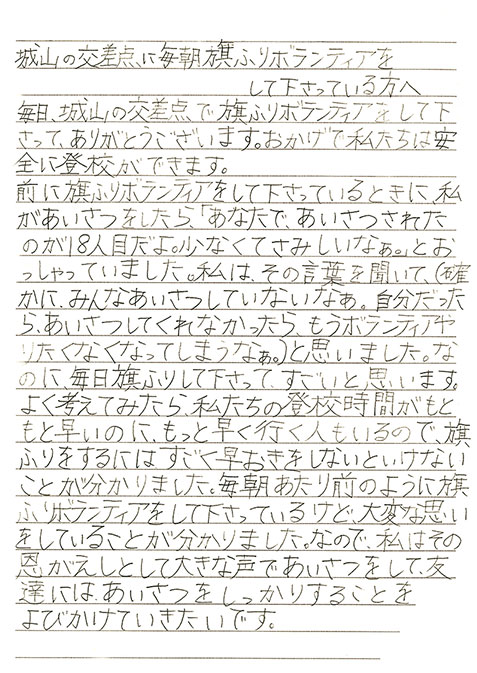 城山の交差点に毎朝旗ふりボランティアを
して下さっている方へ
毎日、城山の交差点で旗ふりボランティアをして下
さって、ありがとうございます。おかげで私たちは安
全に登校ができます。
前に旗ふりボランティアをして下さっているときに、私
があいさつをしたら、「あなたで、あいさつされた
のが18人目だよ。少なくてさみしいなぁ。」とお
っしゃっていました。私は、その言葉を聞いて、(確
かに、みんなあいさつしていないなぁ。自分だった
ら、あいさつしてくれなかったら、もうボランティアや
りたくなくなってしまうなぁ。)と思いました。な
のに、毎日旗ふりして下さって、すごいと思います。
よく考えてみたら、私たちの登校時間がもと
もと早いのに、もっと早く行く人もいるので、旗
ふりをするにはすごく早おきをしないといけない
ことが分かりました。毎朝あたり前のように旗
ふりボランティアをして下さっているけど、大変な思い
をしていることが分かりました。なので、私はその
恩がえしとして大きな声であいさつをして、友
達には、あいさつをしっかりすることを
よびかけていきたいです。